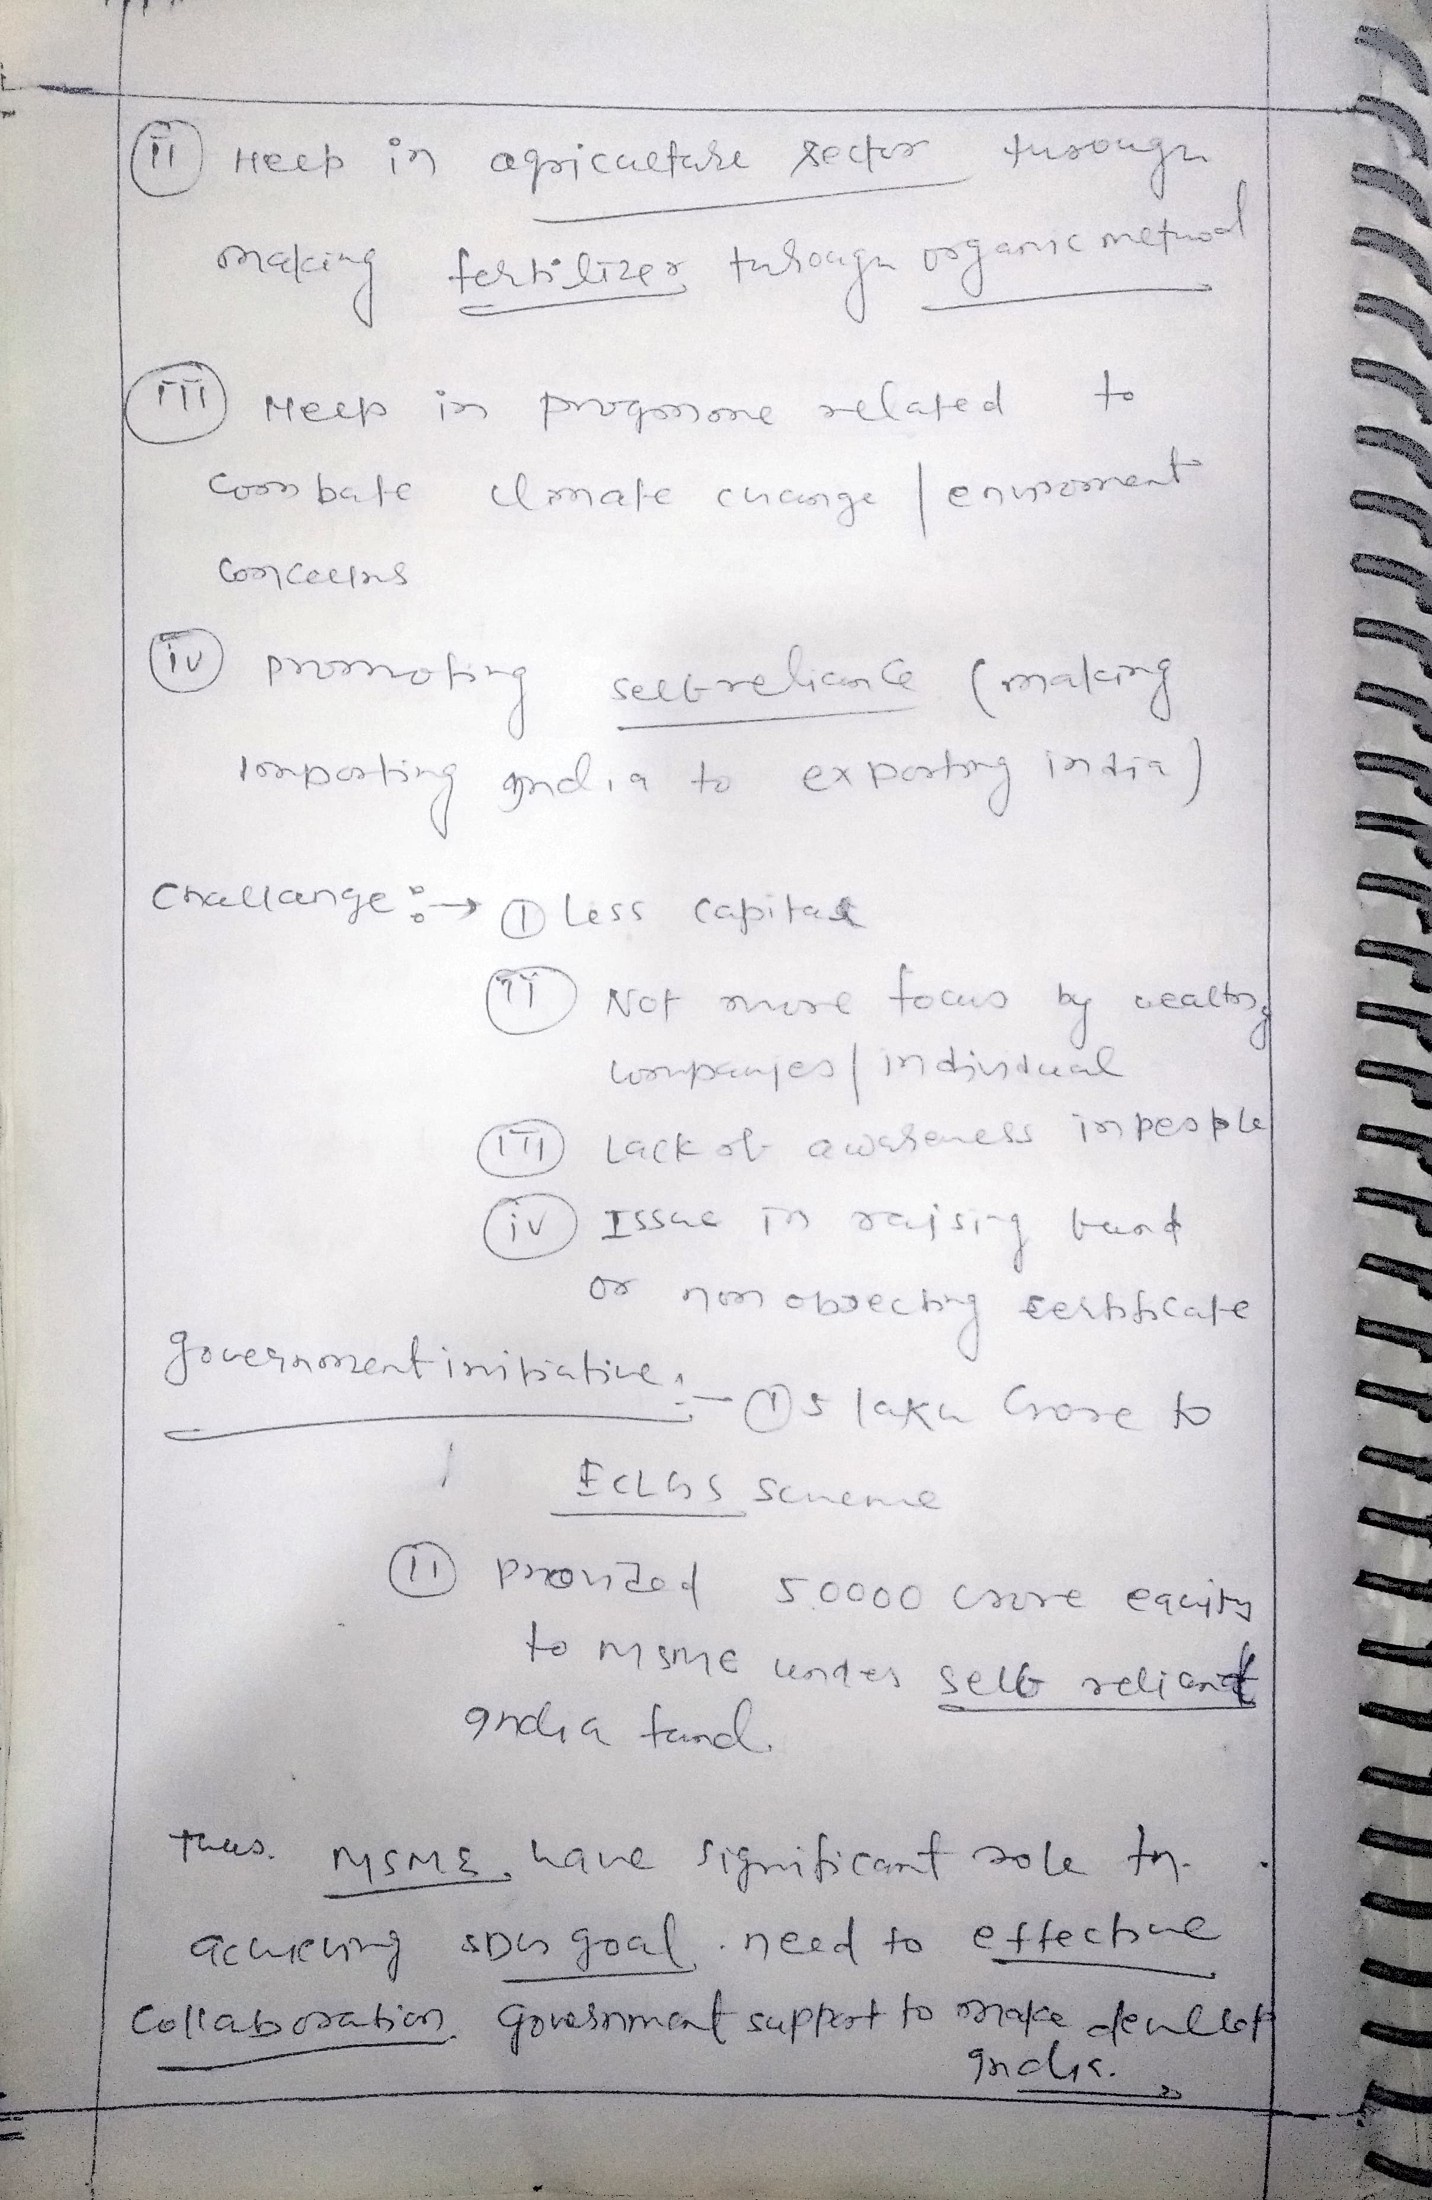 (ii) Help in agriculture sector through
making fertilizer through organic method
(iii) Help in programme related to
combate climate change / enviroment
concerns
(iv) promoting self reliance (making
importing India to exporting india)
Challange :→ (i) Less capital
(ii) Not more focus by wealthy
companies / individual
(iii) Lack of awareness in people
(iv) Issue in raising fund
or non objecting certificate
government initiative :- (i) 5 lakh Crore to
ECLGS scheme
(ii) Provided 50000 crore equity
to MSME under self reliant
India fund.
Thus. MSME, have significant role in
achieving SDG goal. need to effective
Collaboration government support to make
India.